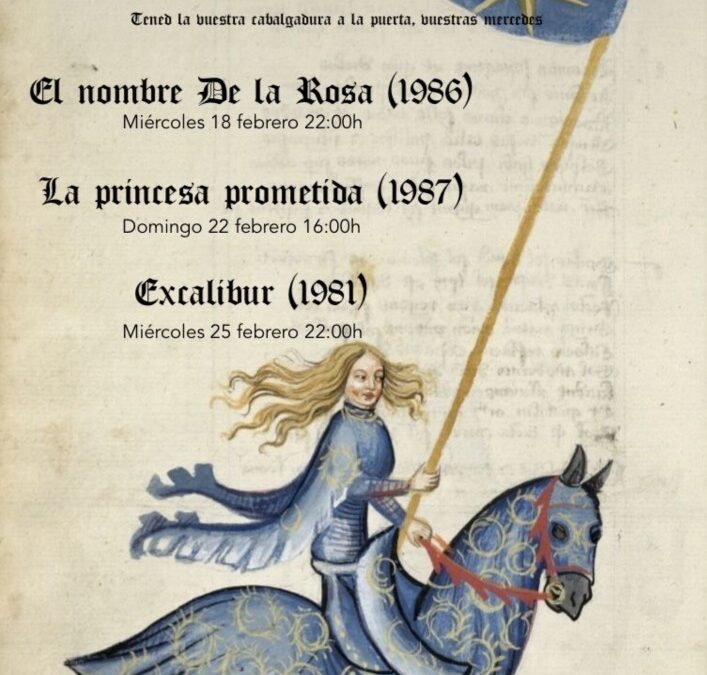 Tened la vuestra cabalgadura a la puerta, vuestras mercedes
El nombre De la Rosa (1986)
Miércoles 18 febrero 22:00h
La princesa prometida (1987)
Domingo 22 febrero 16:00h
Excalibur (1981)
Miércoles 25 febrero 22:00h